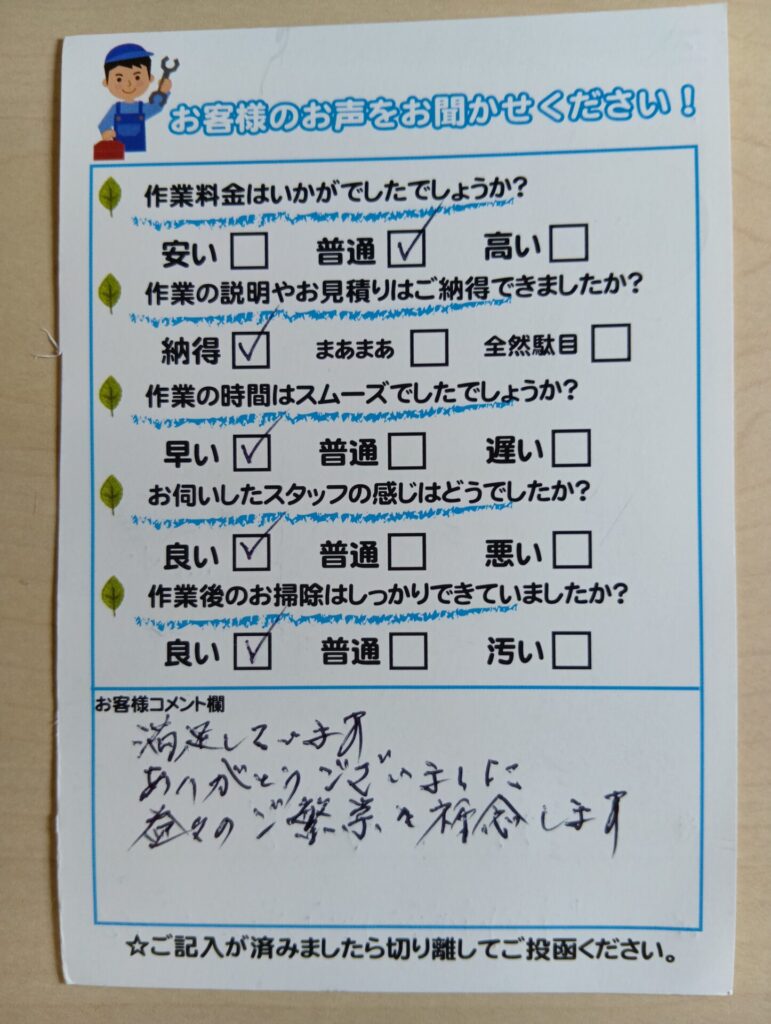 お客様のお声をお聞かせください！
作業料金はいかがでしたでしょうか？
安い□ 普通☑ 高い□
作業の説明やお見積りはご納得できましたか？
納得☑ まあまあ□ 全然駄目□
作業の時間はスムーズでしたでしょうか？
早い☑ 普通□ 遅い□
お伺いしたスタッフの感じはどうでしたか？
良い☑ 普通□ 悪い□
作業後のお掃除はしっかりできていましたか？
良い☑ 普通□ 汚い□
お客様コメント欄
満足しています
ありがとうございました
益々のご繁栄を祈念します
☆ご記入が済みましたら切り離してご投函ください。